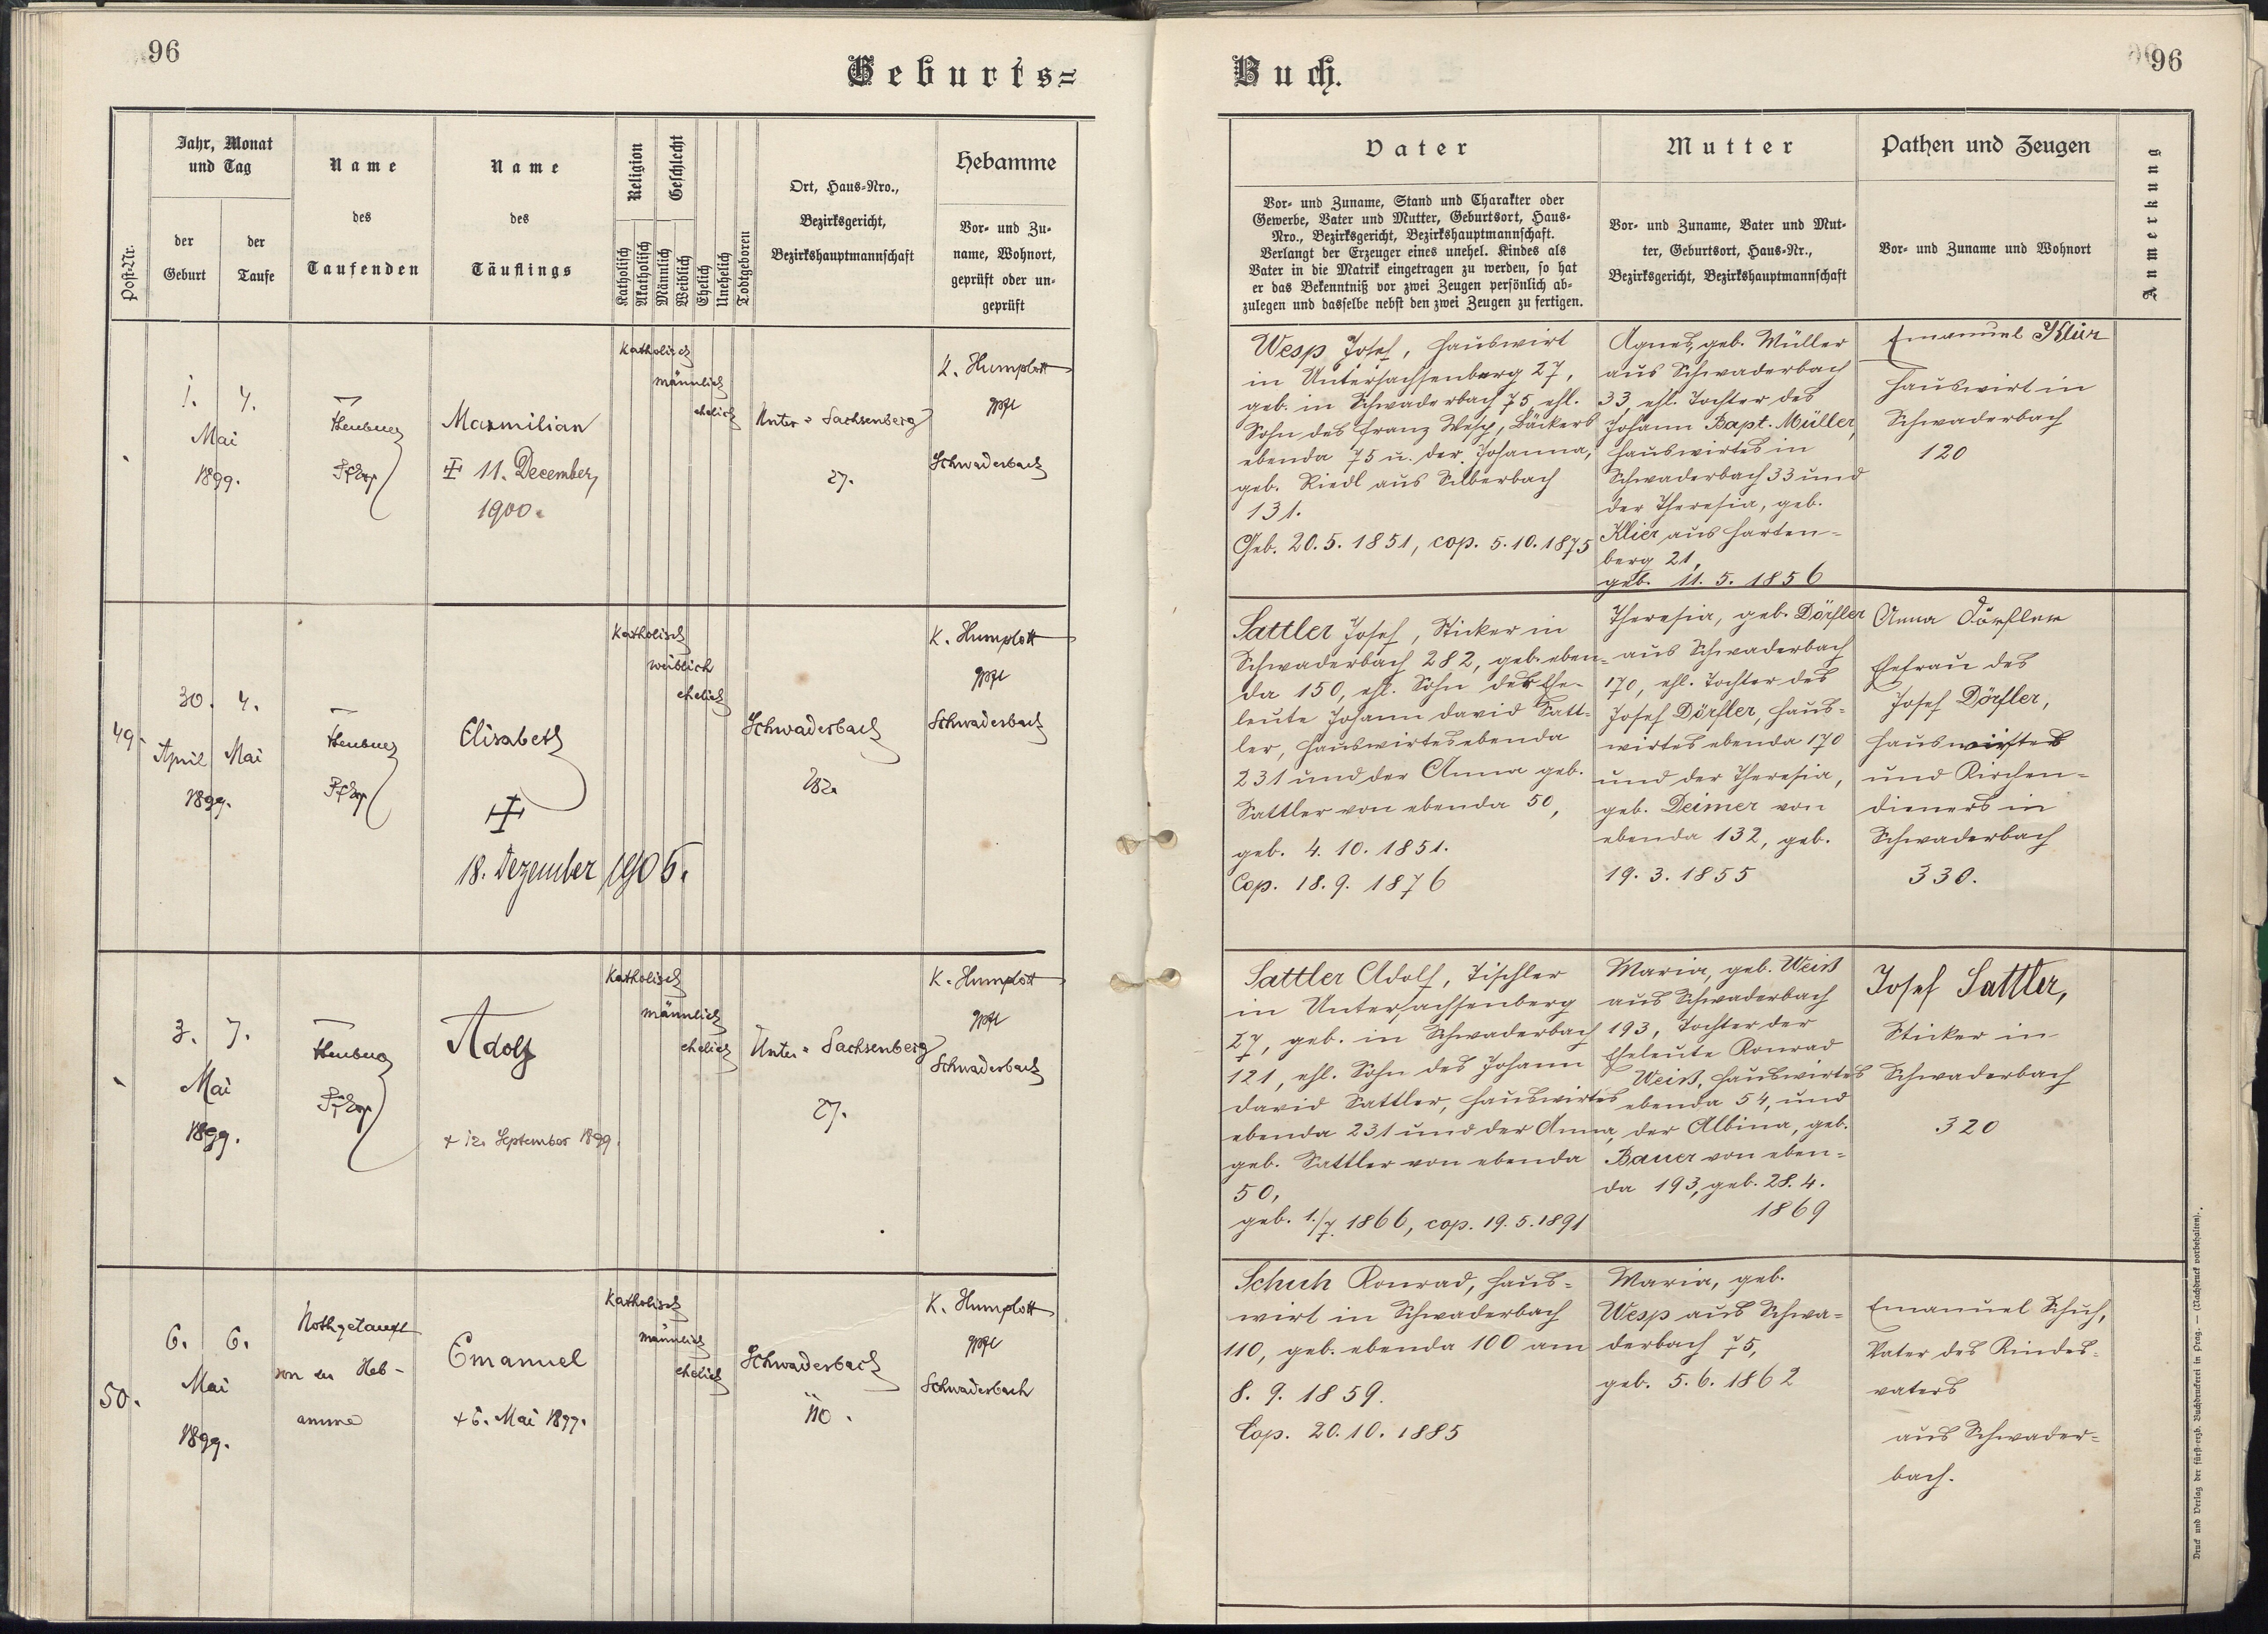 96
Geburts=
Jahr, Monat
und Tag
der
Geburt
der
Taufe
Post-Nr.
Name
des
Taufenden
Name
des
Täuflings
Religion
Geschlecht
Katholisch
Akatholisch
Männlich
Weiblich
Ehelich
Unehelich
Todtgeboren
Ort, Haus-Nro.,
Bezirksgericht,
Bezirkshauptmannschaft
Hebamme
Vor- und Zu-
name, Wohnort,
geprüft oder un-
geprüft
1. 4.
Mai
1899.
Maxmilian
11. December
1900.
katholisch
männlich
ehelich
Unter = Sachsenberg
27.
K. Humplott
gpft
Schwaderbach
49.
30. 4.
April Mai
1899.
Elisabeth
18. Dezember 1905.
Katholisch
weiblich
ehelich
Schwaderbach
282.
K. Humplott
gpft
Schwaderbach
3. 7.
Mai
1899.
Adolf
+ 12. September 1899.
Katholisch
männlich
ehelich
Unter = Sachsenberg
27.
K. Humplott
gpft
Schwaderbach
50.
6. 6.
Mai
1899.
Nothgetauft
von der Heb-
amme
Emanuel
+ 6. Mai 1899.
Katholisch
männlich
ehelich
Schwaderbach
110.
K. Humplott
gpft
Schwaderbach
Buch.
96
Vater
Vor- und Zuname, Stand und Charakter oder
Gewerbe, Vater und Mutter, Geburtsort, Haus-
Nro., Bezirksgericht, Bezirkshauptmannschaft.
Verlangt der Erzeuger eines unehel. Kindes als
Vater in die Matrik eingetragen zu werden, so hat
er das Bekenntniß vor zwei Zeugen persönlich ab-
zulegen und dasselbe nebst den zwei Zeugen zu fertigen.
Mutter
Vor- und Zuname, Vater und Mut-
ter, Geburtsort, Haus-Nr.,
Bezirksgericht, Bezirkshauptmannschaft
Pathen und Zeugen
Vor- und Zuname und Wohnort
Anmerkung
Wesp Josef, Hauswirt
in Untersachsenberg 27,
geb. in Schwaderbach 75 ehl.
Sohn des Franz Wesp, Bäckers
ebenda 75 u. der Johanna,
geb. Riedl aus Silberbach
131.
Geb. 20.5.1851, cop. 5.10.1875
Agnes, geb. Müller
aus Schwaderbach
33, ehl. Tochter des
Johann Bapt. Müller,
Hauswirtes in
Schwaderbach 33 und
der Theresia, geb.
Klier aus Harten-
berg 21,
geb. 11. 5. 1856
Emanuel Klier
Hauswirt in
Schwaderbach
120
Sattler Josef, Sticker in
Schwaderbach 282, geb. eben-
da 150, ehl. Sohn der Ehe-
leute Johann David Satt-
ler, Hauswirtes ebenda
231 und der Anna geb.
Sattler von ebenda 50,
geb. 4. 10. 1851.
Cop. 18. 9. 1876
Theresia, geb. Dörfler
aus Schwaderbach
170, ehl. Tochter des
Josef Dörfler, Haus-
wirtes ebenda 170
und der Theresia,
geb. Deimer von
ebenda 132, geb.
19. 3. 1855
Anna Dörfler
Ehefrau des
Josef Dörfler,
Hauswirtes
und Kirchen-
dieners in
Schwaderbach
330.
Sattler Adolf, Tischler
in Untersachsenberg
27, geb. in Schwaderbach
121, ehl. Sohn des Johann
David Sattler, Hauswirtes
ebenda 231 und der Anna,
geb. Sattler von ebenda
50,
geb. 1./7. 1866, cop. 19.5.1891
Maria, geb. Weiß
aus Schwaderbach
193, Tochter der
Eheleute Konrad
Weiß, Hauswirtes
ebenda 54, und
der Albina, geb.
Bauer von eben-
da 193, geb. 28. 4.
1869
Josef Sattler,
Sticker in
Schwaderbach
320
Schuh Konrad, Haus-
wirt in Schwaderbach
110, geb. ebenda 100 am
8. 9. 1859.
Cop. 20. 10. 1885
Maria, geb.
Wesp aus Schwa-
derbach 75,
geb. 5. 6. 1862
Emanuel Schuh,
Vater des Kindes-
vaters
aus Schwader-
bach.
Druck und Verlag der fürst-erzb. Buchdruckerei in Prag. — (Nachdruck vorbehalten).